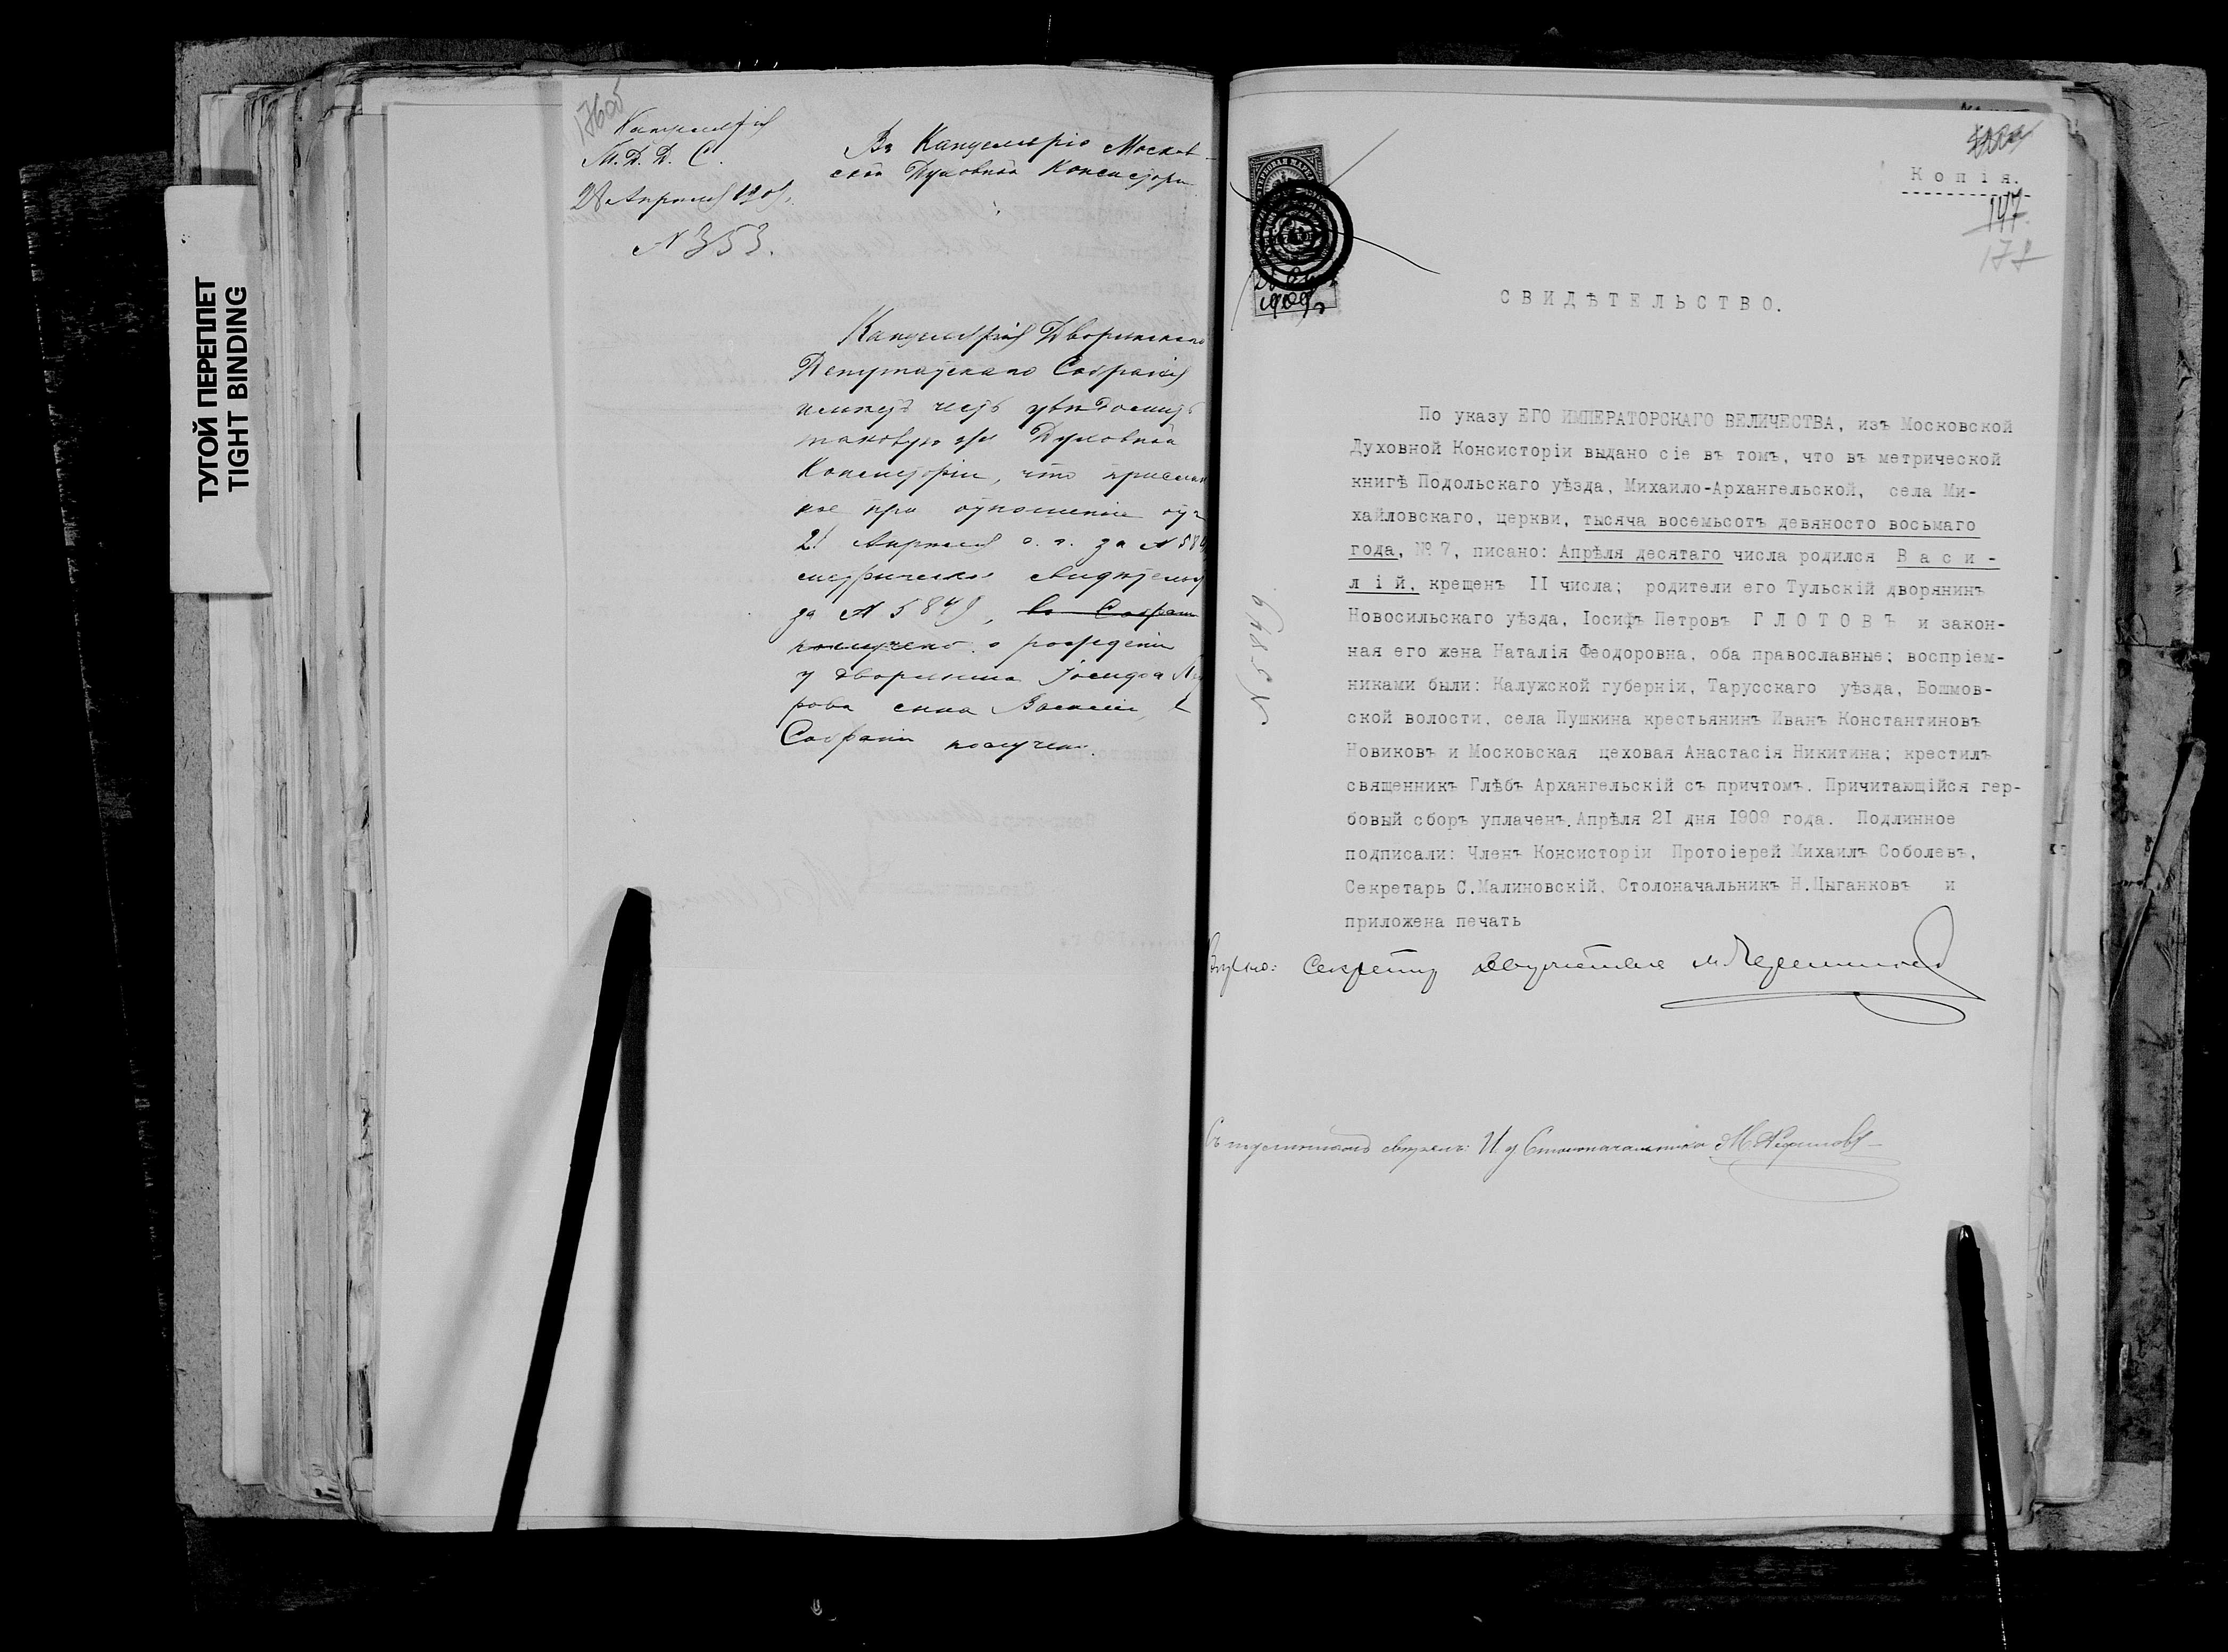 ТУГОЙ ПЕРЕПЛЕТ
TIGHT BINDING
176об
Канцелярія
М. Д. Д. С.
28 Апрѣля 1909.
№ 353.
Въ Канцелярію Москов-
ской Духовной Консисторіи
Канцелярія Дворянскаго
Депутатскаго Собранія
имѣетъ честь увѣдомить
таковую же Духовной
Консисторіи, что прислан
ное при отношеніи отъ
21 Апрѣля с. г. за № 5849
метрическое свидѣтельст
за № 5849, въ Собран
получено о рожденіи
у дворянина Іосифа Пет
рова сына Василія, въ
Собраніи получено.
Копія.
147
177
1909 г
СВИДѢТЕЛЬСТВО.
По указу ЕГО ИМПЕРАТОРСКАГО ВЕЛИЧЕСТВА, изъ Московской
Духовной Консисторіи выдано сіе въ томъ, что въ метрической
книгѣ Подольскаго уѣзда, Михаило-Архангельской, села Ми-
хайловскаго, церкви, тысяча восемьсотъ девяносто восьмаго
года, № 7, писано: Апрѣля десятаго числа родился Васи-
лій, крещенъ II числа; родители его Тульскій дворянинъ
Новосильскаго уѣзда, Іосифъ Петровъ ГЛОТОВЪ и закон-
ная его жена Наталія Феодоровна, оба православные; воспріем-
никами были: Калужской губерніи, Тарусскаго уѣзда, Вошмов-
ской волости, села Пушкина крестьянинъ Иванъ Константиновъ
Новиковъ и Московская цеховая Анастасія Никитина; крестилъ
священникъ Глѣбъ Архангельскій съ причтомъ. Причитающійся гер-
бовый сборъ уплаченъ. Апрѣля 21 дня 1909 года. Подлинное
подписали: Членъ Консисторіи Протоіерей Михаилъ Соболевъ,
Секретарь С.Малиновскій, Столоначальникъ Н.Цыганковъ и
приложена печать
№ 5849.
Вѣрно: Секретарь Дворянства
Съ подлиннымъ свѣрялъ: И. д Столоначальника